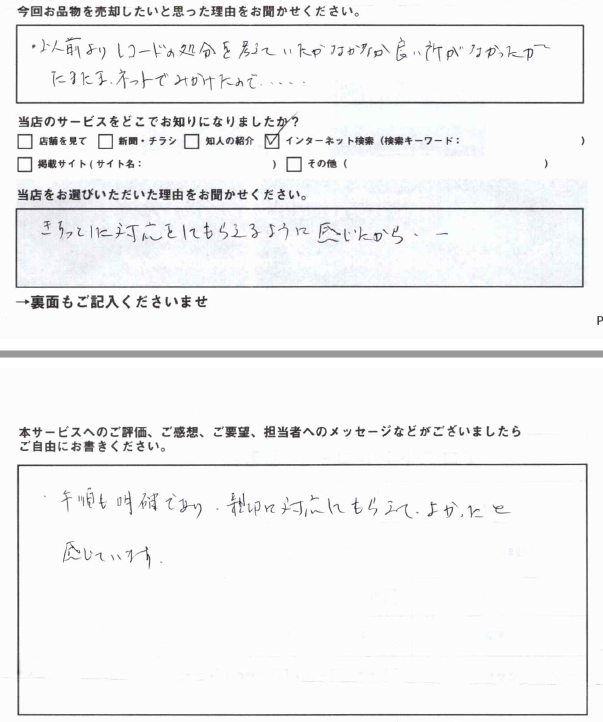 今回お品物を売却したいと思った理由をお聞かせください。
・以前よりレコードの処分を考えていたがなかなか良い所がなかったが
たまたまネットでみかけたので.....
当店のサービスをどこでお知りになりましたか？
店舗を見て 新聞・チラシ 知人の紹介 インターネット検索（検索キーワード： ）
掲載サイト(サイト名： ) その他（ ）
当店をお選びいただいた理由をお聞かせください。
きちっとした対応をしてもらえるように感じたから..
→裏面もご記入くださいませ
P
本サービスへのご評価、ご感想、ご要望、担当者へのメッセージなどがございましたら
ご自由にお書きください。
・手順も明確であり、親切に対応してもらえて、よかったと
感じています。